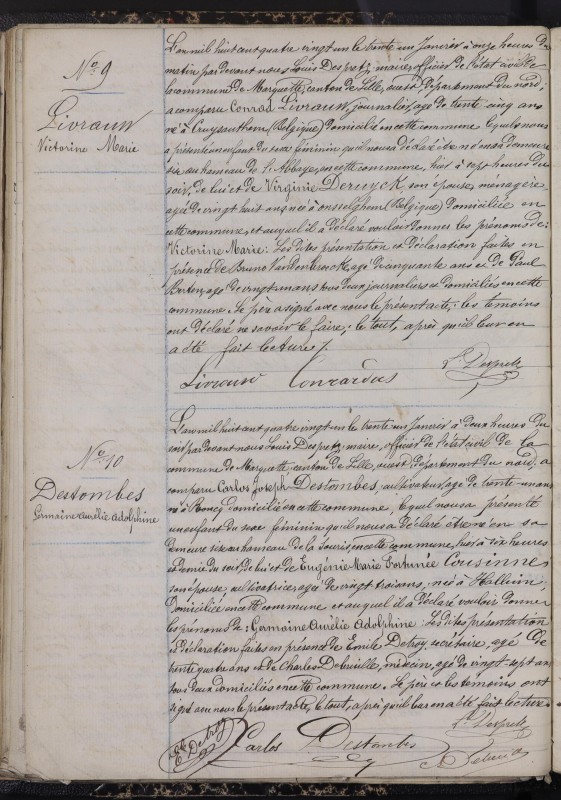 No. 9
Livrauw
Victorine Marie
L'an mil huit cent quatre vingt un le trente un Janvier à onze heures du
matin par devant nous Louis Despretz, maire, officier de l'état civil de
la commune de Marquette, canton de Lille, ouest, département du nord,
a comparu Conrad Livrauw, journalier, âgé de trente cinq ans
né à Cruyshauthem (Belgique) domicilié en cette commune, lequel nous
a présenté un enfant du sexe féminin qu'il nous a déclaré être né en sa demeure
sise au hameau de l'Abbaye, en cette commune, hier à sept heures du
soir, de lui et de Virginie Deruyck, son épouse, ménagère,
âgée de vingt huit ans née à (Belgique) domiciliée en
cette commune, et auquel il a déclaré vouloir donner les prénoms de:
Victorine Marie: Les dites présentation et déclaration faites en
présence de Bruno Vandenbrock, âgé de cinquante ans et de Paul
âgé de vingt un ans tous deux journaliers et domiciliés en cette
commune. Le père a signé avec nous le présent acte; les témoins
ont déclaré ne savoir le faire; le tout, après qu'il leur en
a été fait lecture.
L. Despretz
Livrauw Conradus
No. 10
Destombes
Germaine Aurélie Adolphine
L'an mil huit cent quatre vingt un le trente un Janvier à deux heures du
soir par devant nous Louis Despretz, maire, officier de l'état civil de la
commune de Marquette, canton de Lille, ouest, département du nord, a
comparu Carlos Joseph Destombes, cultivateur, âgé de trente un ans
né à Roncq domicilié en cette commune, lequel nous a présenté
un enfant du sexe féminin qu'il nous a déclaré être né en sa
demeure sise au hameau de la Souris, en cette commune, hier à dix heures
et demie du soir, de lui et de Eugénie Marie Fortunée Cousinne,
son épouse, cultivatrice, âgée de vingt trois ans, née à Halluin,
domiciliée en cette commune et auquel il a déclaré vouloir donner
les prénoms de: Germaine Aurélie Adolphine: Les dites présentation
et déclaration faites en présence de Emile Detroy, secrétaire, âgé de
trente quatre ans et de Charles médecin, âgé de vingt-sept ans
tous deux domiciliés en cette commune. Le père et les témoins ont
signé avec nous le présent acte, le tout, après qu'il leur en a été fait lecture.
L. Despretz
Detroy Carlos Destombes